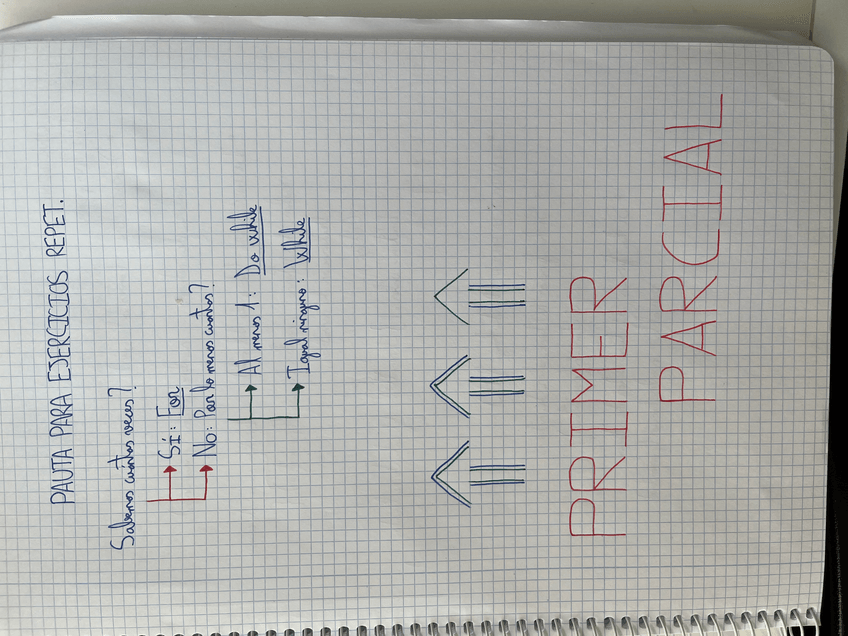 PAUTA PARA EJERCICIOS REPET.
Sabemos cuántas veces?
Sí: For
No: Por lo menos cuántas?
Al menos 1: Do while
Igual ninguno: While
PRIMER
PARCIAL